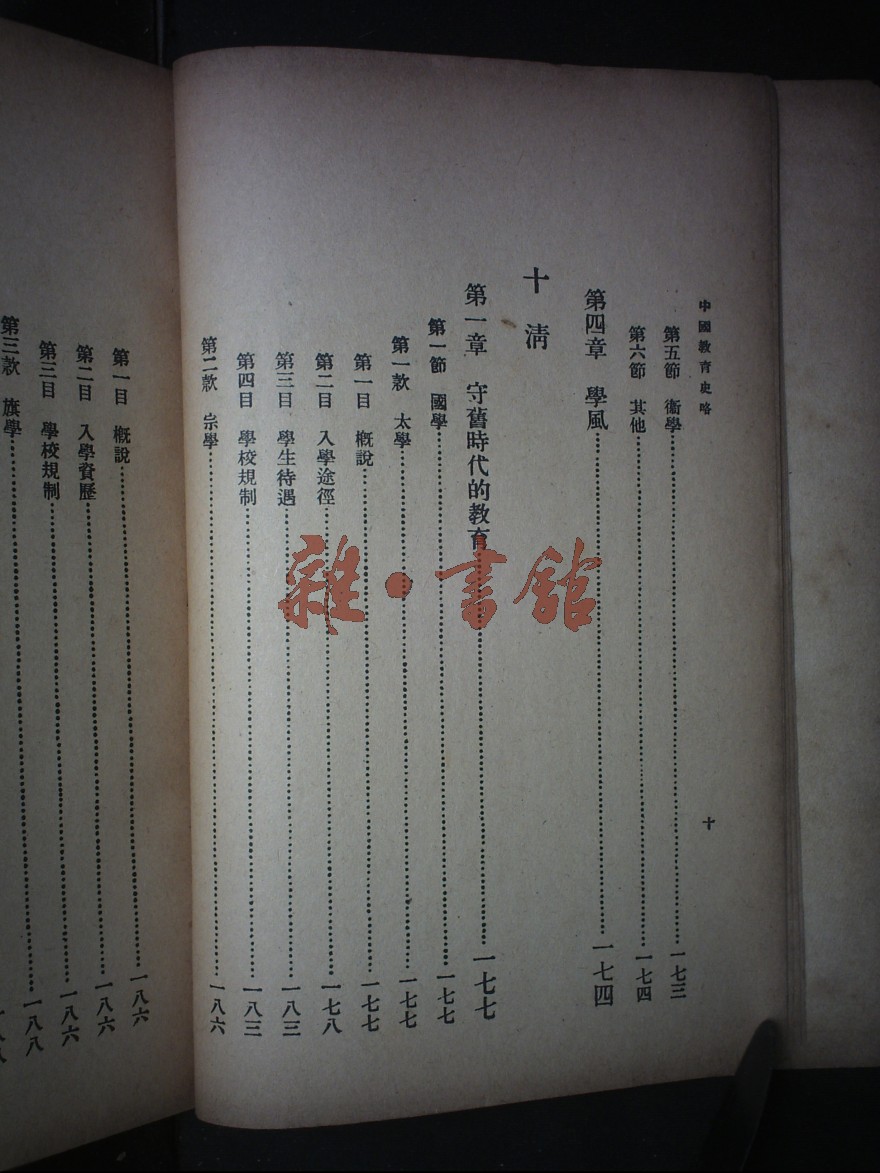 中國教育史略
十
第五節 衞學 一七三
第六節 其他 一七四
第四章 學風 一七四
十 淸
第一章 守舊時代的教育 一七七
第一節 國學 一七七
第一款 太學 一七七
第一目 概說 一七七
第二目 入學途徑 一七八
第三目 學生待遇 一八三
第四目 學校規制 一八三
第二款 宗學 一八六
第一目 概說 一八六
第二目 入學資歷 一八六
第三目 學校規制 一八六
第三款 旗學 一八八
雜·書館